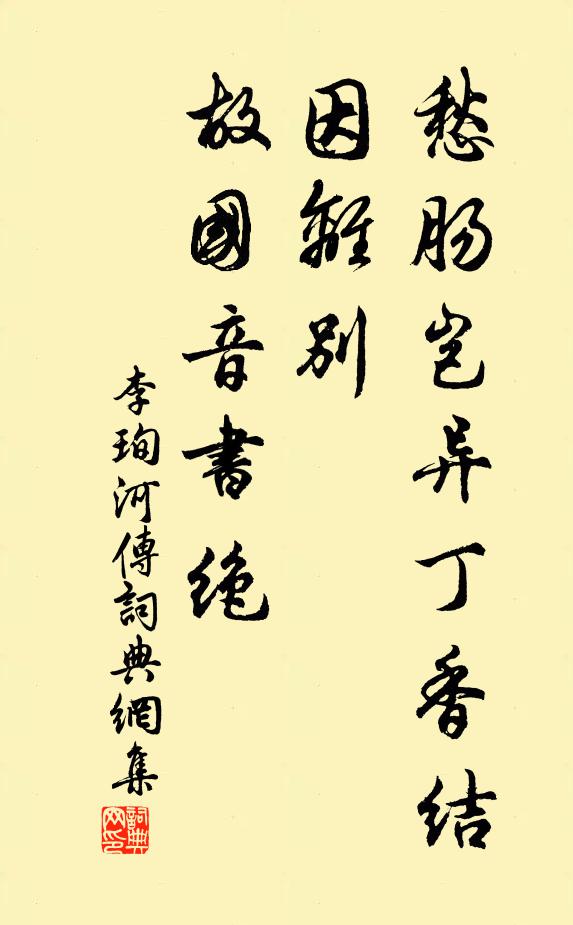 愁肠岂异丁香结
因離别
故國音書绝
李珣河傳詞典網集
詞典網印